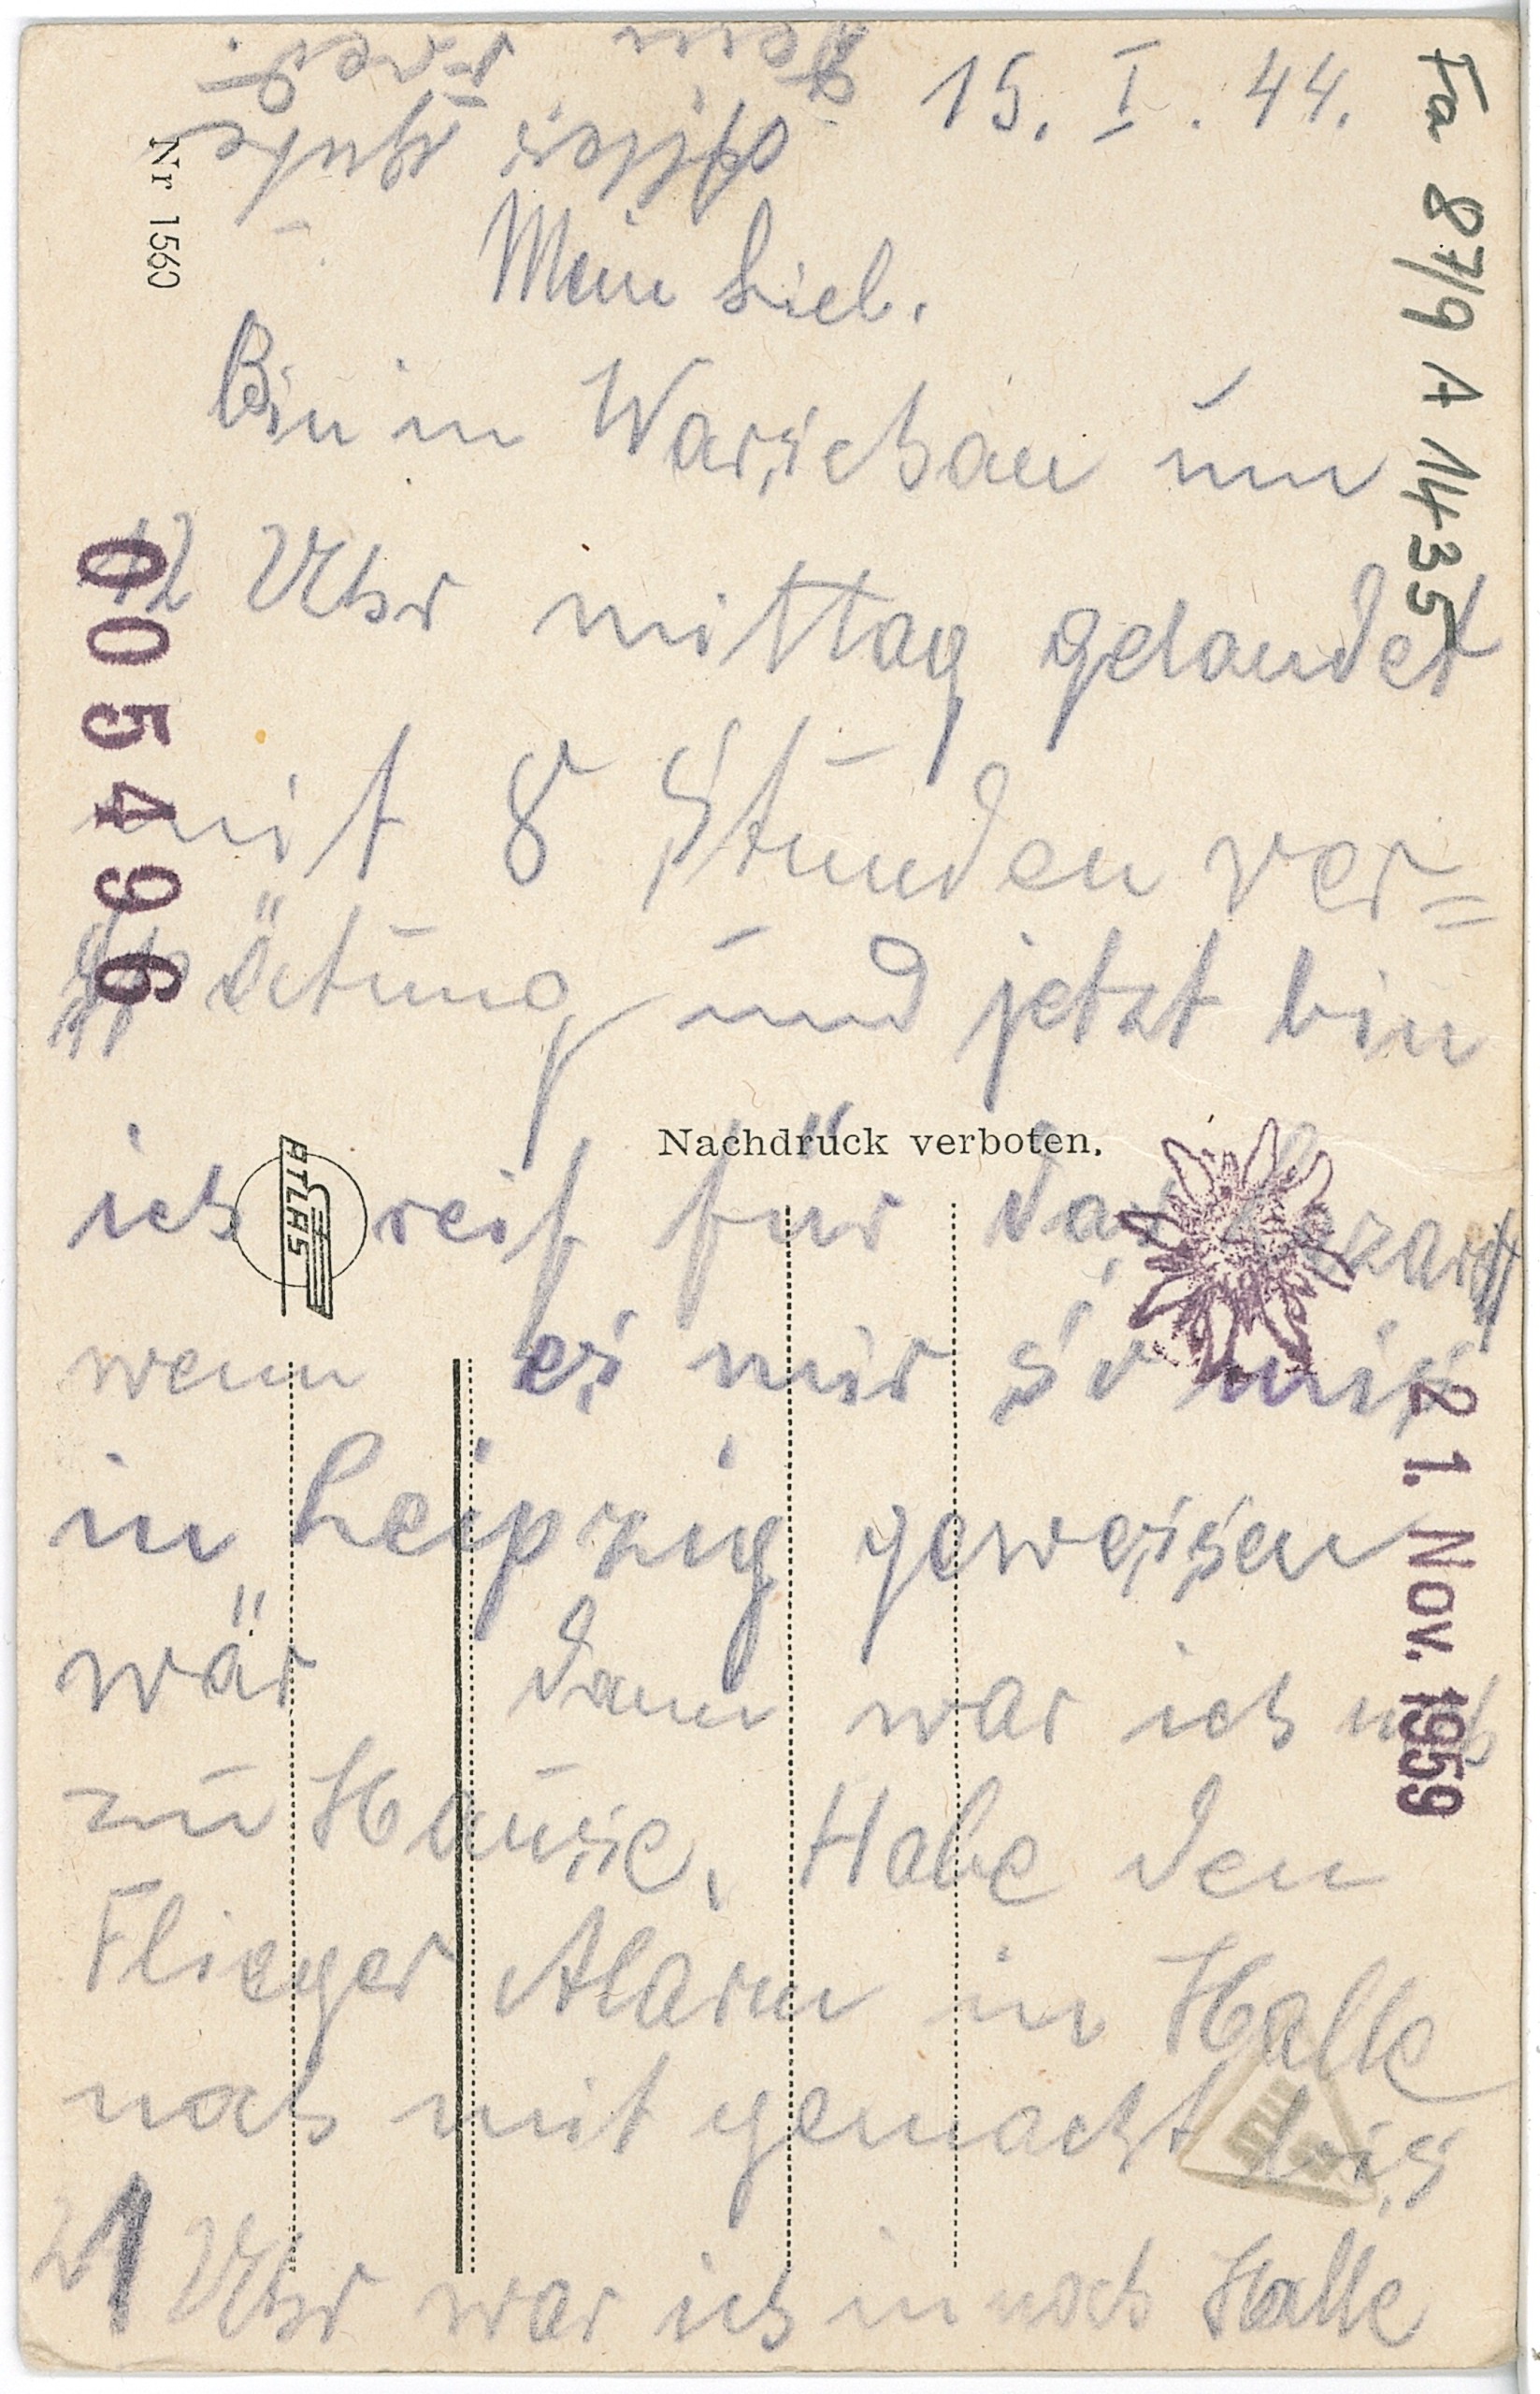 15. I. 44.
Mein Lieb.
Bin in Warschau um
12 Uhr mittag gelandet
mit 8 Stunden ver=
spätung und jetzt bin
ich reif für das Lazarett
wenn es mir so mis
in Leipzig gewesen
wär dann war ich noch
zu Hause. Habe den
Flieger Alarm in Halle
noch mit gemacht bis
21 Uhr war ich in noch Halle
Alles gute
Dein
Fa 87/9 A 1435
Nr 1560
0054996
Nachdruck verboten.
ATLAS
21. Nov. 1959